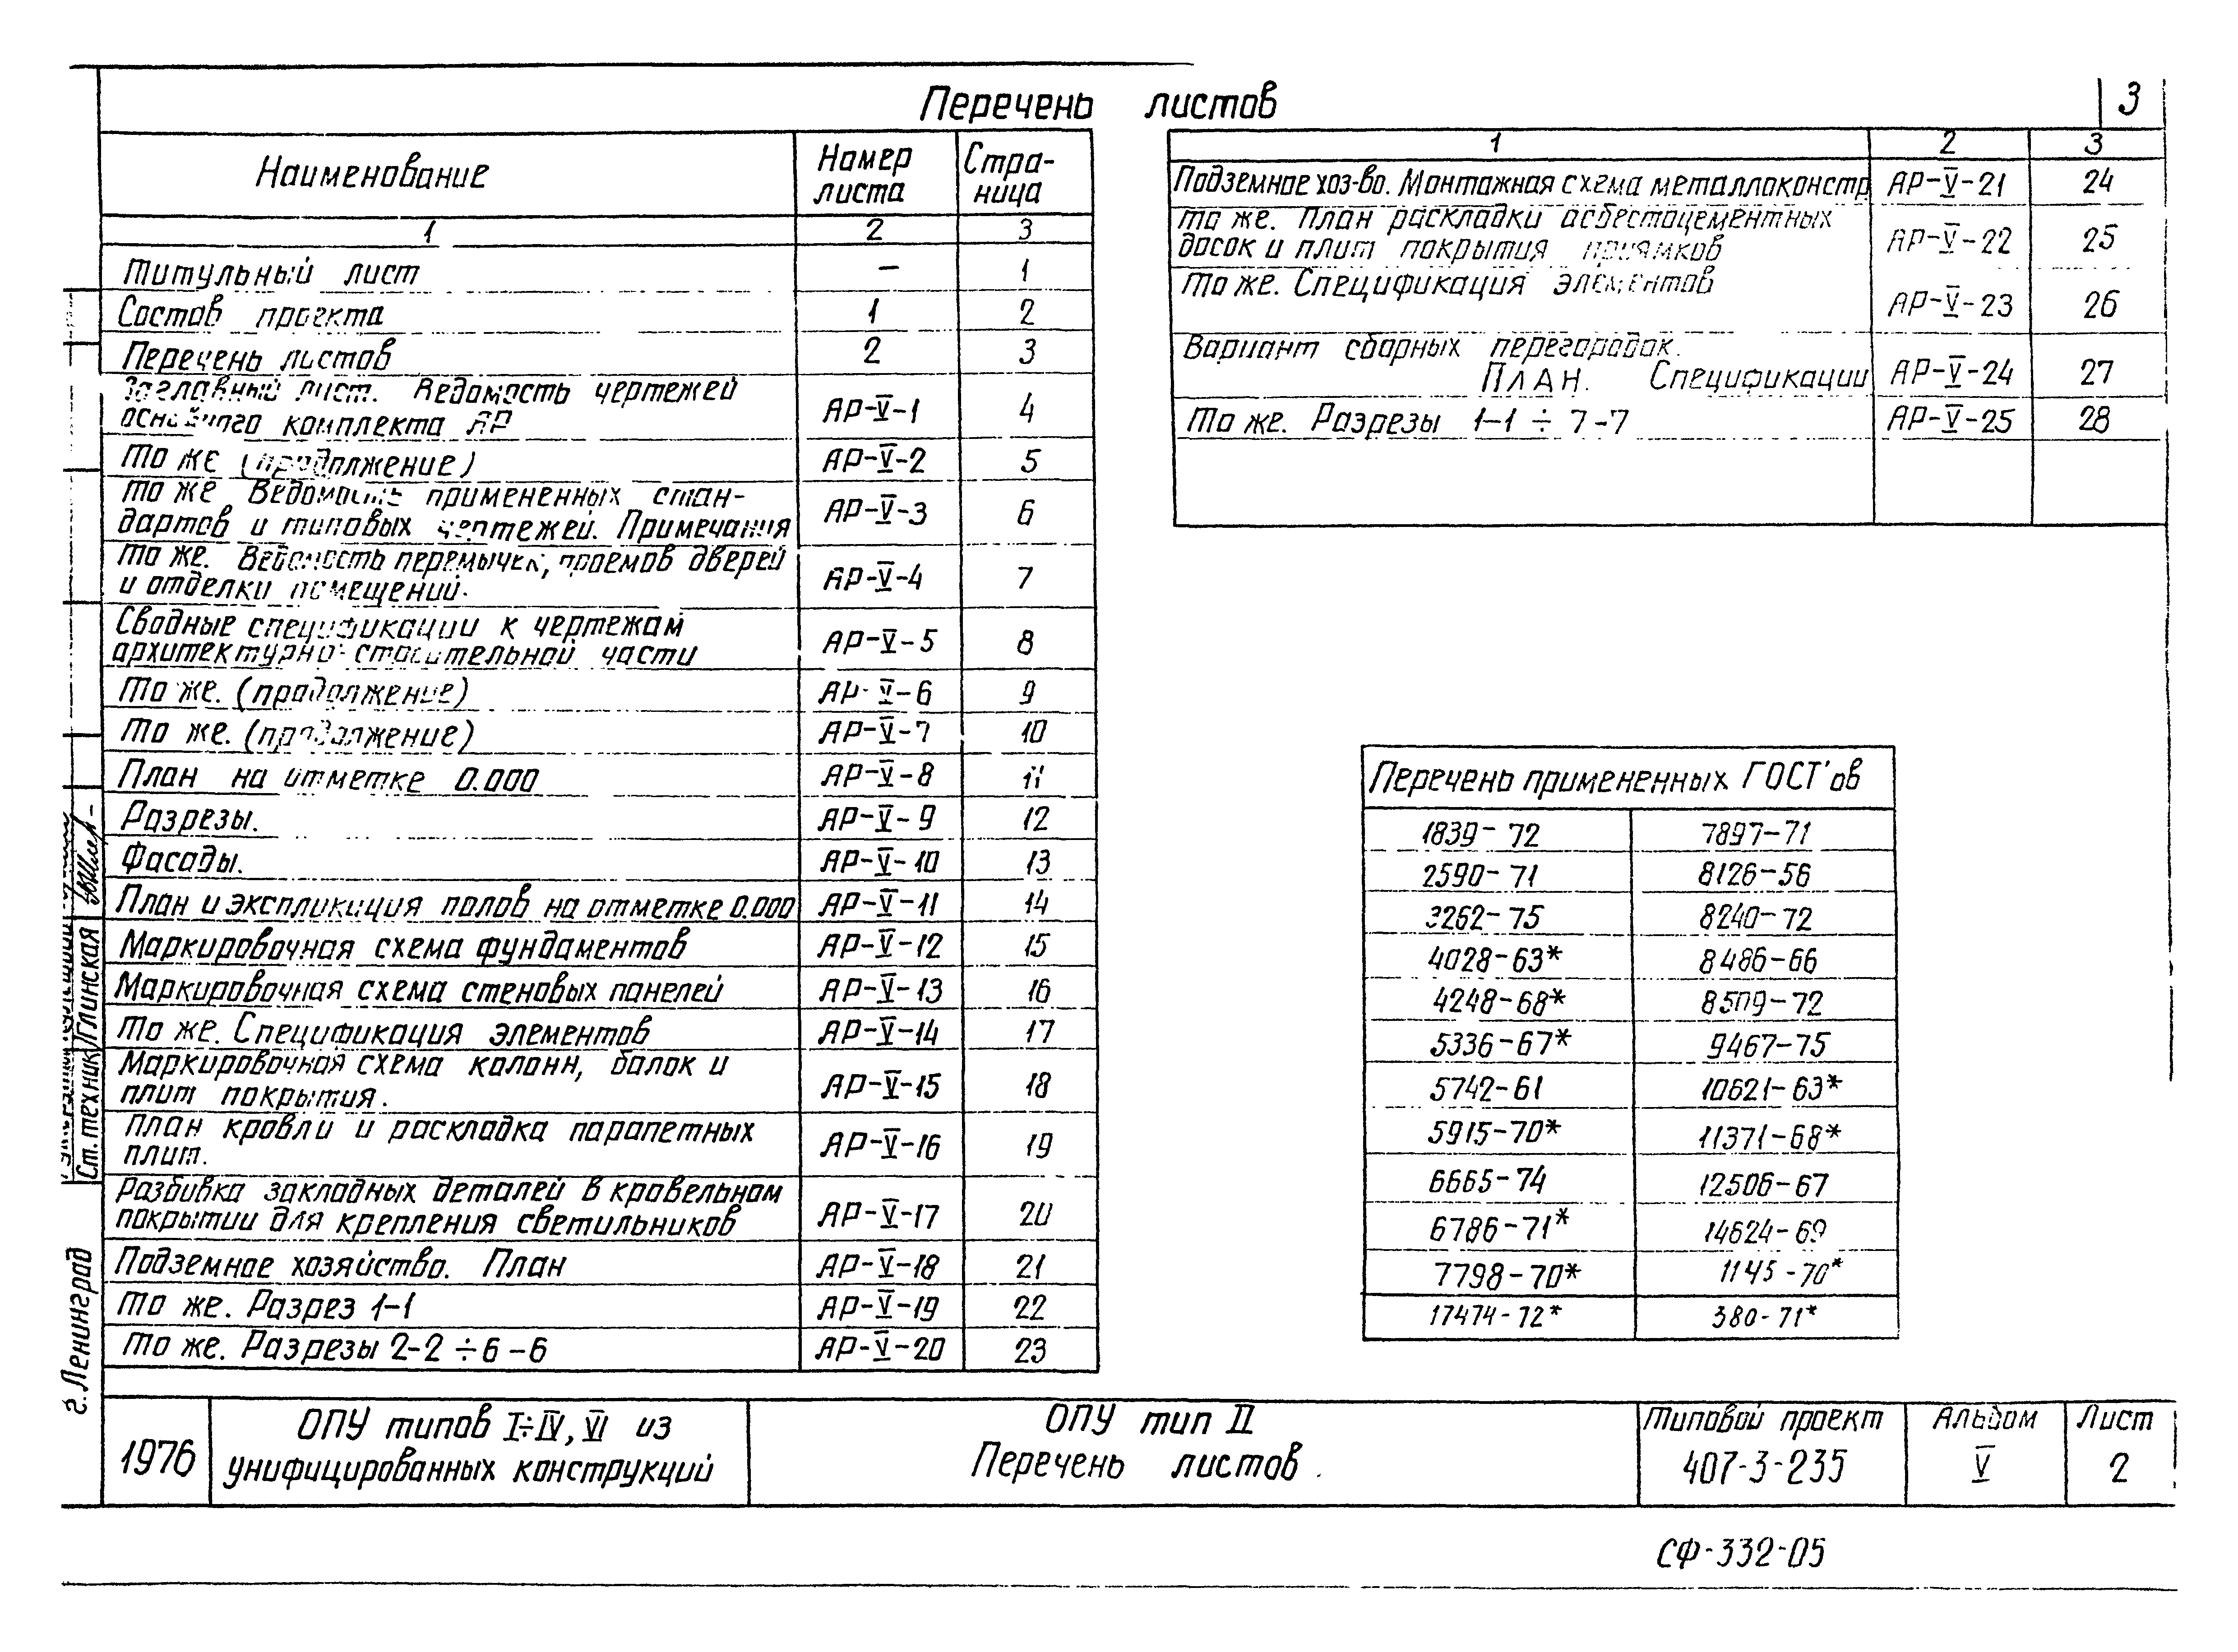 Перечень листов
3
Наименование
Номер листа
Стра-
ница
1 2 3
Титульный лист — 1
Состав проекта 1 2
Перечень листов 2 3
Заглавный лист. Ведомость чертежей
основного комплекта АР АР-V-1 4
То же (продолжение) АР-V-2 5
То же Ведомость примененных стан-
дартов и типовых чертежей. Примечания АР-V-3 6
То же. Ведомость перемычек, проемов дверей
и отделки помещений. АР-V-4 7
Сводные спецификации к чертежам
архитектурно-строительной части АР-V-5 8
То же. (продолжение) АР-V-6 9
То же. (продолжение) АР-V-7 10
План на отметке 0.000 АР-V-8 11
Разрезы. АР-V-9 12
Фасады. АР-V-10 13
План и экспликация полов на отметке 0.000 АР-V-11 14
Маркировочная схема фундаментов АР-V-12 15
Маркировочная схема стеновых панелей АР-V-13 16
То же. Спецификация элементов АР-V-14 17
Маркировочная схема колонн, балок и
плит покрытия. АР-V-15 18
План кровли и раскладка парапетных
плит. АР-V-16 19
Разбивка закладных деталей в кровельном
покрытии для крепления светильников АР-V-17 20
Подземное хозяйство. План АР-V-18 21
То же. Разрез 1-1 АР-V-19 22
То же. Разрезы 2-2÷6-6 АР-V-20 23
1 2 3
Подземное хоз-во. Монтажная схема металлоконстр АР-V-21 24
То же. План раскладки асбестоцементных
досок и плит покрытия приямков АР-V-22 25
То же. Спецификация элементов АР-V-23 26
Вариант сборных перегородок.
ПЛАН. Спецификации АР-V-24 27
То же. Разрезы 1-1÷7-7 АР-V-25 28
Перечень примененных ГОСТ'ов
1839-72 7897-71
2590-71 8126-56
3262-75 8240-72
4028-63* 8486-66
4248-68* 8509-72
5336-67* 9467-75
5742-61 10621-63*
5915-70* 11371-68*
6665-74 12506-67
6786-71* 14624-69
7798-70* 1145-70*
17474-72* 380-71*
Ст. техник Глинская
г. Ленинград
1976
ОПУ типов I÷IV, VI из
унифицированных конструкций
ОПУ тип II
Перечень листов.
Типовой проект
407-3-235
Альбом
V
Лист
2
СФ-332-05